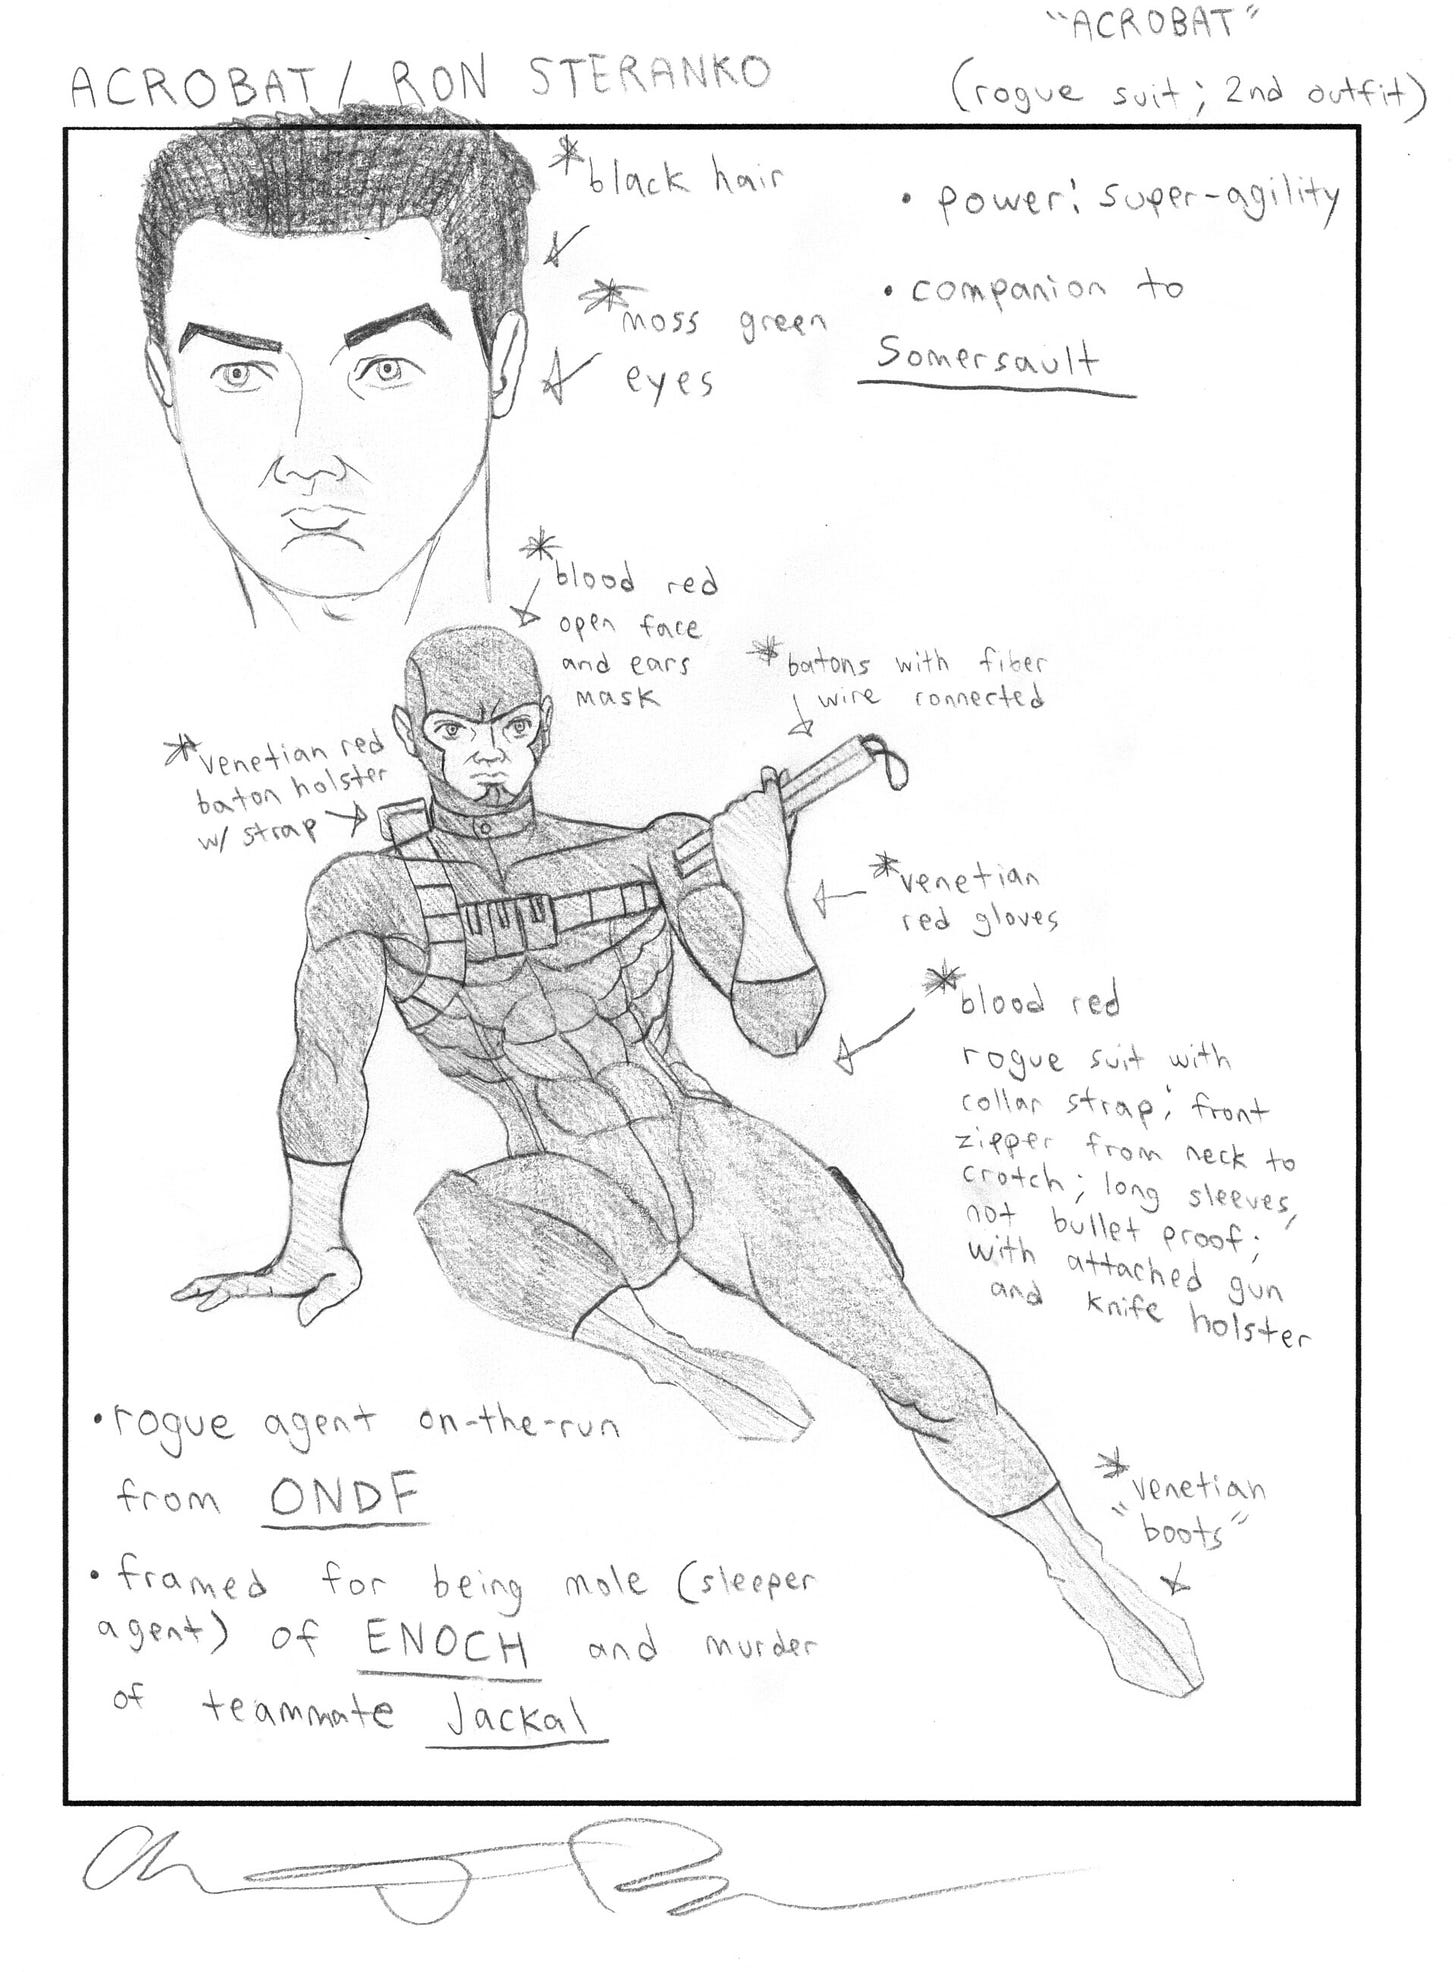 "ACROBAT"
ACROBAT / RON STERANKO
(rogue suit; 2nd outfit)
*black hair
• power: super-agility
*moss green
eyes
• companion to
Somersault
*blood red
open face
and ears
mask
*batons with fiber
wire connected
*venetian red
baton holster
w/ strap
*venetian
red gloves
*blood red
rogue suit with
collar strap; front
zipper from neck to
crotch; long sleeves,
not bullet proof;
with attached gun
and knife holster
• rogue agent on-the-run
from ONDF
*venetian
"boots"
• framed for being mole (sleeper
agent) of ENOCH and murder
of teammate Jackal